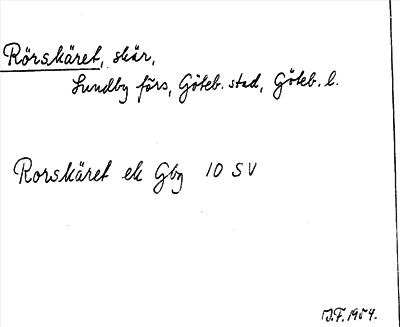 Rörskäret, skär,
Lundby förs, Göteb. stad, Göteb. l.
Rorskäret ek Gbg 10 SV
J.F. 1954.